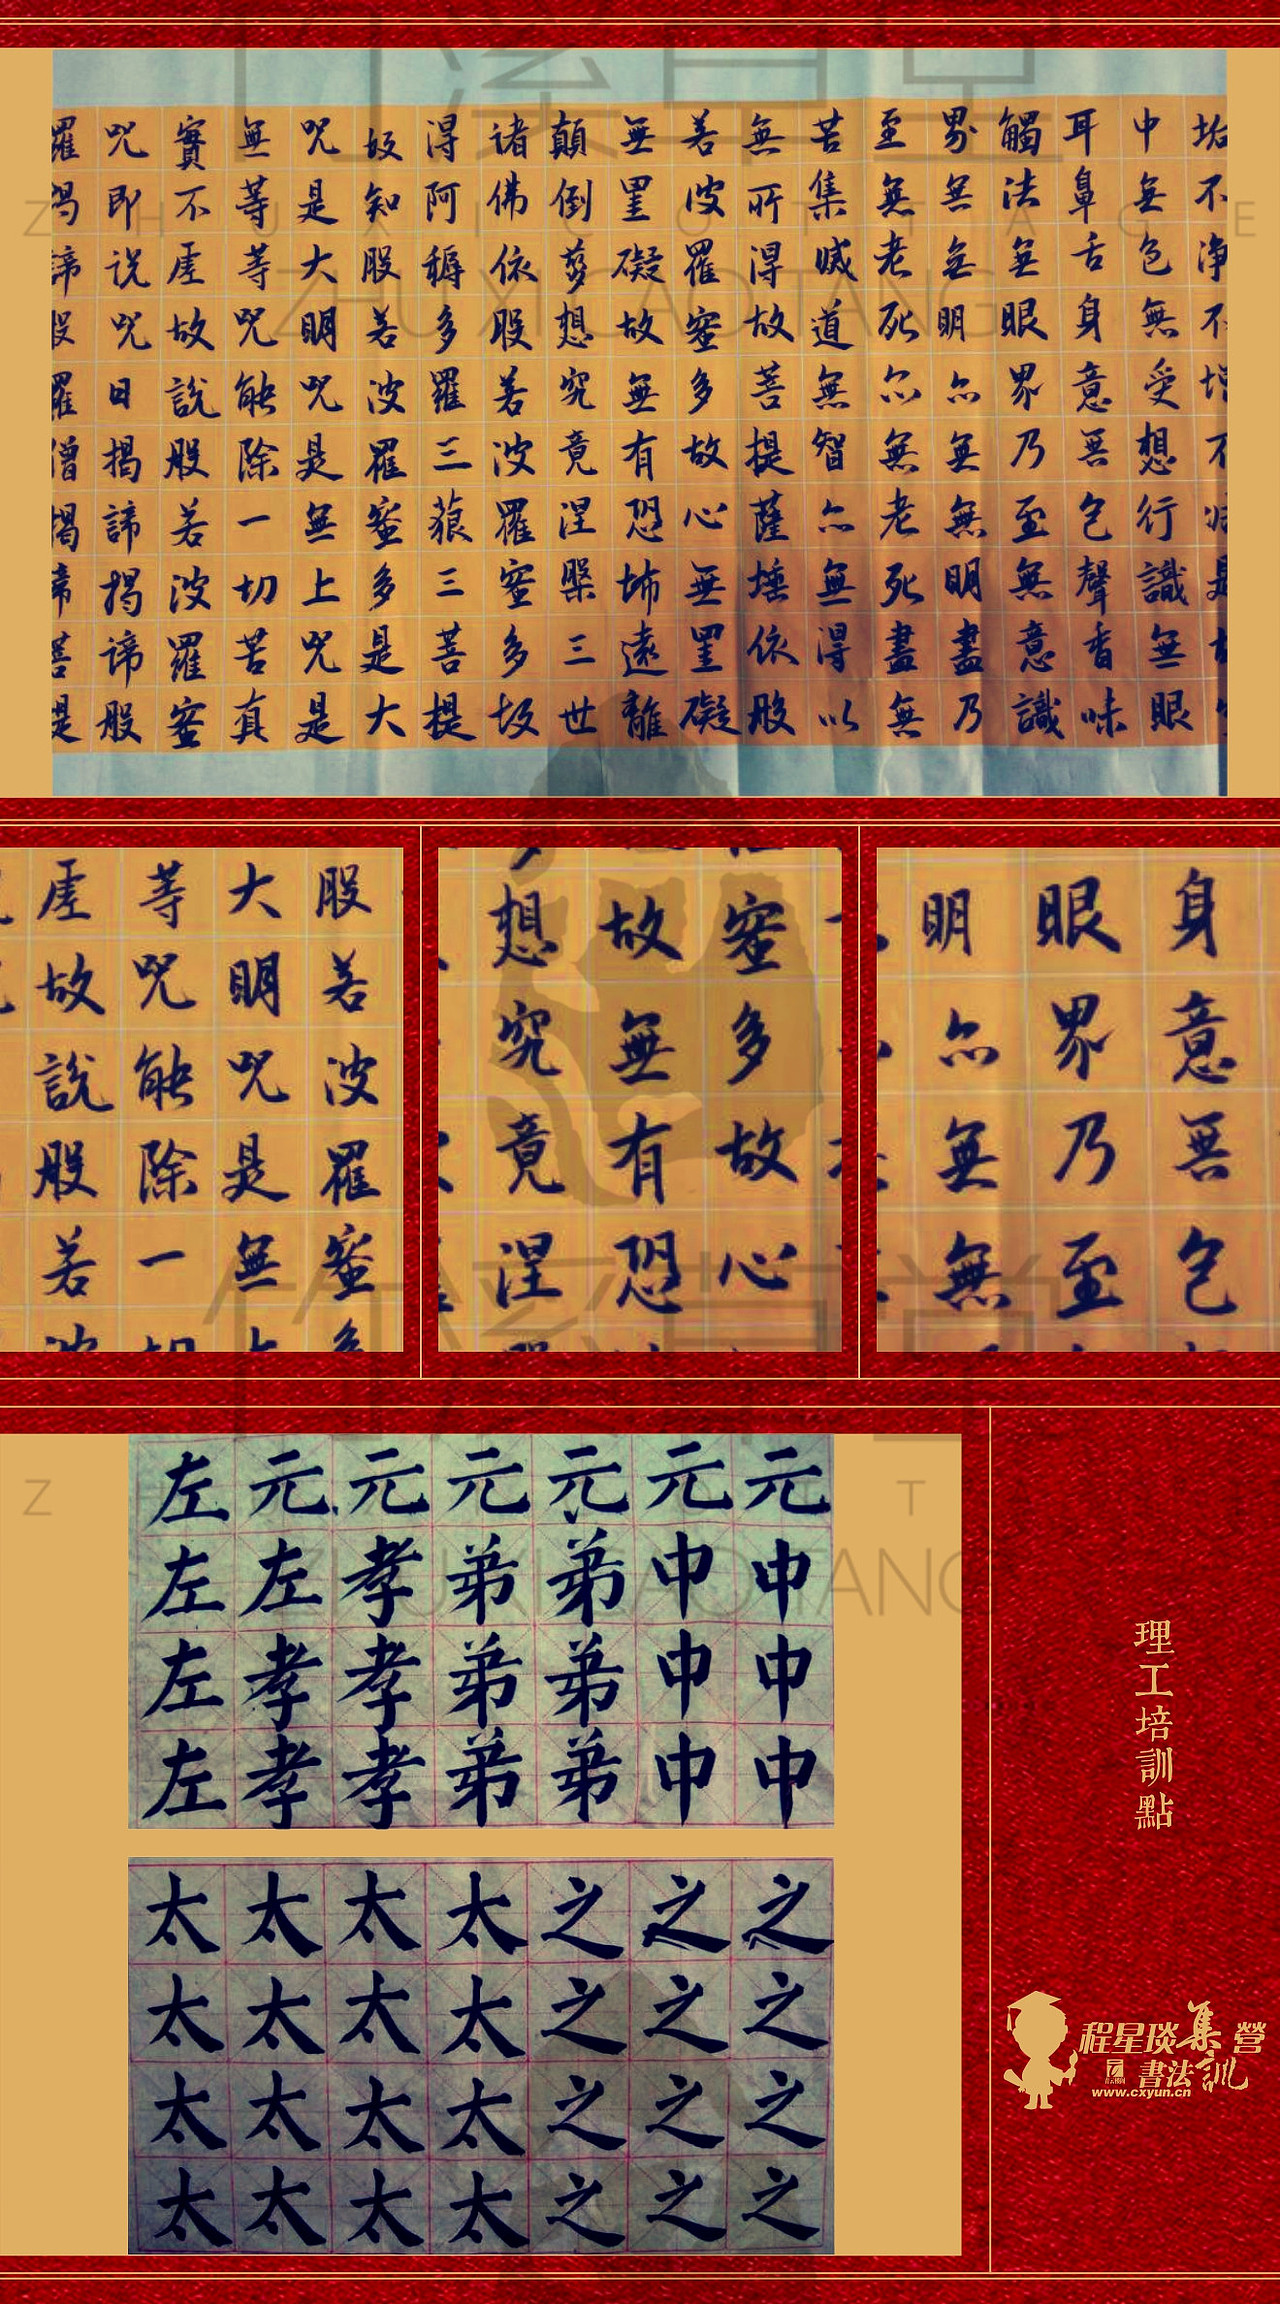 垢不淨不增不減是
中無色無受想行識無眼
耳鼻舌身意無色聲香味
觸法無眼界乃至無意識
界無無明亦無無明盡乃
至無老死亦無老死盡無
苦集滅道無智亦無得以
無所得故菩提薩埵依般
若波羅蜜多故心無罣礙
無罣礙故無有恐怖遠離
顛倒夢想究竟涅槃三世
諸佛依般若波羅蜜多故
得阿耨多羅三藐三菩提
故知般若波羅蜜多是大
咒是大明咒是無上咒是
無等等咒能除一切苦真
實不虛故說般若波羅蜜
咒即說咒曰揭諦揭諦般
羅揭諦般羅僧揭諦菩提
ZHU XI COTTAGE
ZHU XI CAO TANG
般若波羅蜜多
大明咒是無上
等咒能除一切
虛故說般若波
蜜多故心
故無有恐
想究竟涅
身意無色
眼界乃至
明亦無無
元中中中
元中中中
元弟弟弟
元弟弟弟
元孝孝孝
元左孝孝
左左左左
ZHU XI CAO TANG
之之之之
之之之之
之之之之
太太太太
太太太太
太太太太
太太太太
理工培訓點
程星琰書法集訓營
www.cxyun.cn